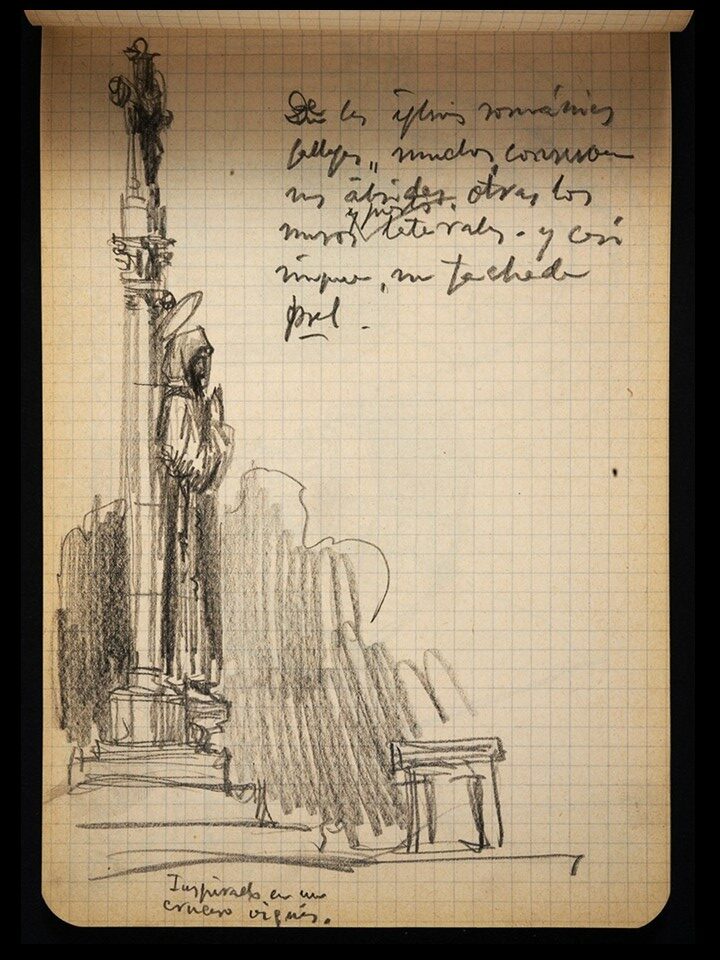 De las iglesias románicas
gallegas, muchas conservan
sus ábsides, otras los
y puertas
muros laterales - y casi
ninguna, su fachada
pral.
Inspirado en un
crucero vigués.